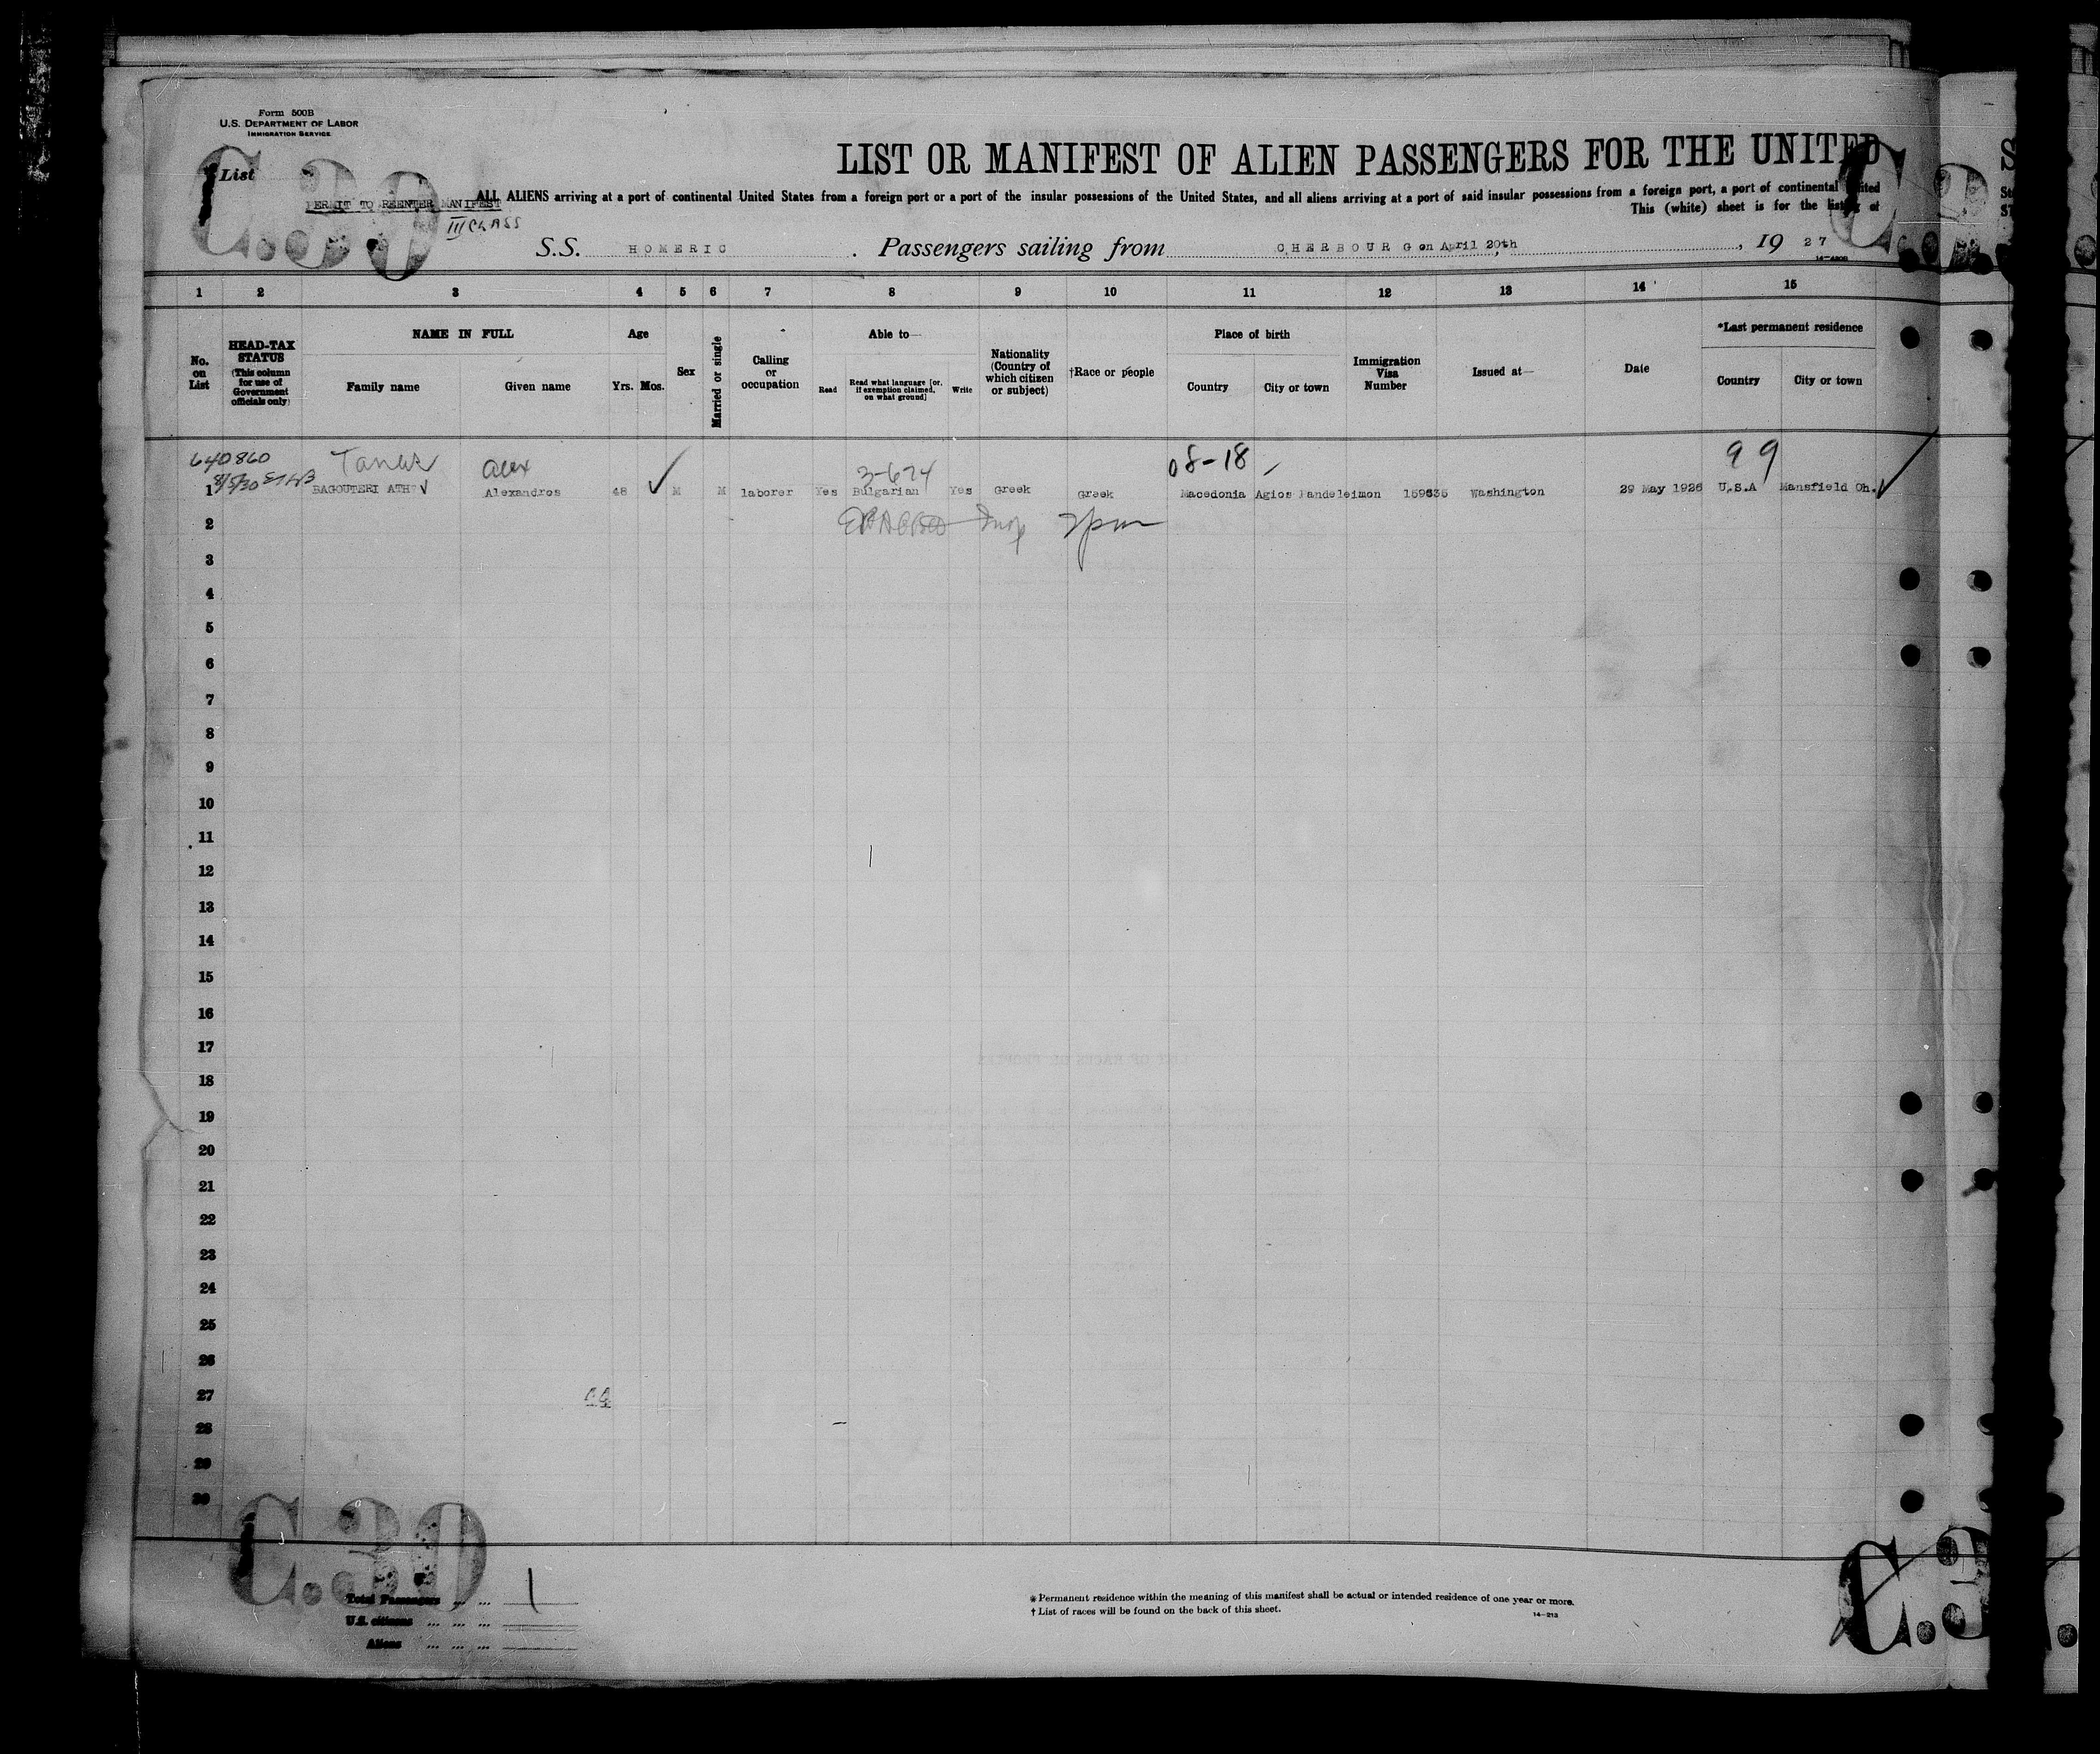 Form 500B
U.S. DEPARTMENT OF LABOR
IMMIGRATION SERVICE
List
C.30
LIST OR MANIFEST OF ALIEN PASSENGERS FOR THE UNITED
ALL ALIENS arriving at a port of continental United States from a foreign port or a port of the insular possessions of the United States, and all aliens arriving at a port of said insular possessions from a foreign port, a port of continental United
PERMIT TO REENTER MANIFEST
This (white) sheet is for the listing of
III CLASS
S.S. HOMERIC. Passengers sailing from CHERBOURG on April 20th, 19 27
1 2 3 4 5 6 7 8 9 10 11 12 13 14 15
No. on List
HEAD-TAX STATUS (This column for use of Government officials only)
NAME IN FULL
Family name Given name
Age
Yrs. Mos.
Sex
Married or single
Calling or occupation
Able to—
Read Read what language [or, if exemption claimed, on what ground] Write
Nationality (Country of which citizen or subject)
†Race or people
Place of birth
Country City or town
Immigration Visa Number
Issued at—
Date
*Last permanent residence
Country City or town
640860 Alex 3-674 08-18 99
8/5/30
1 BAGOUTERI ATH Alexandros 48 M M laborer Yes Bulgarian Yes Greek Greek Macedonia Agios Pandeleimon 159635 Washington 29 May 1926 U.S.A Mansfield Oh.
2
3
4
5
6
7
8
9
10
11
12
13
14
15
16
17
18
19
20
21
22
23
24
25
26
27
28
29
30
C.30
Total Passengers ... ... 1
U.S. citizens ... ... ...
Aliens ... ... ...
* Permanent residence within the meaning of this manifest shall be actual or intended residence of one year or more.
† List of races will be found on the back of this sheet.
14-213